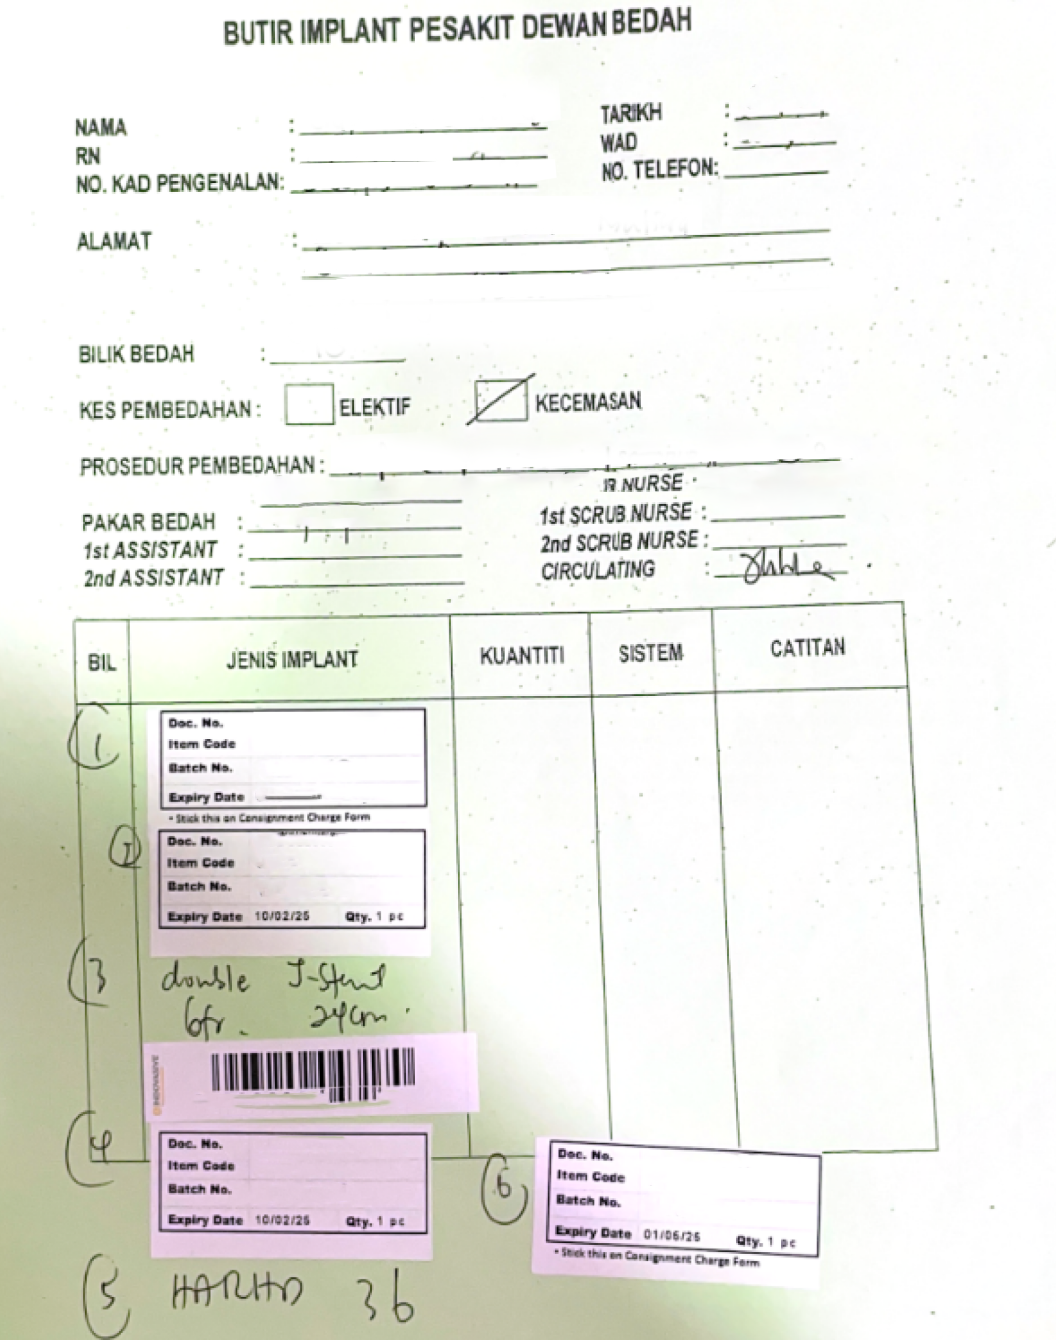 BUTIR IMPLANT PESAKIT DEWAN BEDAH
NAMA :
RN :
NO. KAD PENGENALAN:
TARIKH :
WAD :
NO. TELEFON:
ALAMAT :
BILIK BEDAH :
KES PEMBEDAHAN : ELEKTIF KECEMASAN
PROSEDUR PEMBEDAHAN :
PAKAR BEDAH :
1st ASSISTANT :
2nd ASSISTANT :
NURSE
1st SCRUB NURSE :
2nd SCRUB NURSE :
CIRCULATING :
BIL JENIS IMPLANT KUANTITI SISTEM CATITAN
1
Doc. No.
Item Code
Batch No.
Expiry Date
• Stick this on Consignment Charge Form
2
Doc. No.
Item Code
Batch No.
Expiry Date 10/02/25 Qty. 1 pc
3 double J-Stent
6fr. 24cm.
INNOVASIVE
4
Doc. No.
Item Code
Batch No.
Expiry Date 10/02/25 Qty. 1 pc
5 36
6
Doc. No.
Item Code
Batch No.
Expiry Date 01/05/25 Qty. 1 pc
• Stick this on Consignment Charge Form